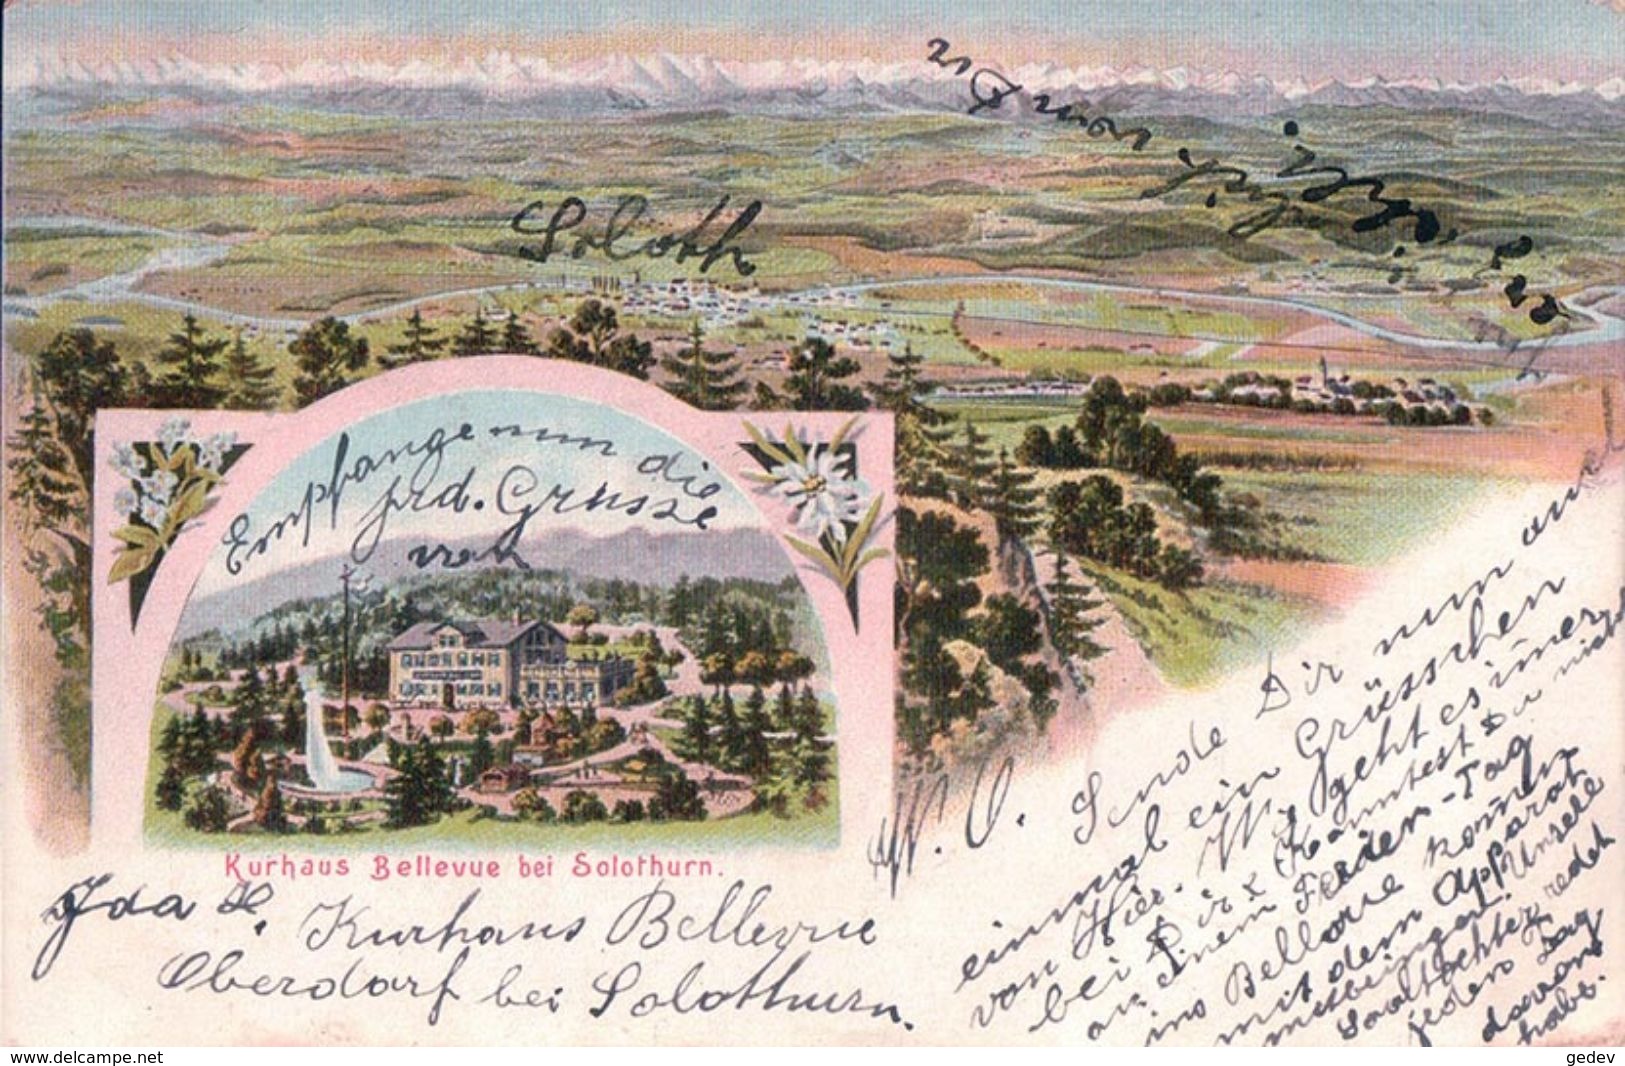 Soloth
Empfange nun die
frd. Grüsse
von
Kurhaus Bellevue bei Solothurn.
Ida H. Kurhaus Bellevue
Oberdorf bei Solothurn.
W. O. Sende Dir nun auch
einmal ein Grüsschen
von Hier. Wie geht es imer
bei Dir? Kanntest Du nicht
an einem Tag
ins Bellevue komen
mit dem Apparat
mitbringen.
Saaltochter redet
jeden Tag
davon
habe.
www.delcampe.net
gedev